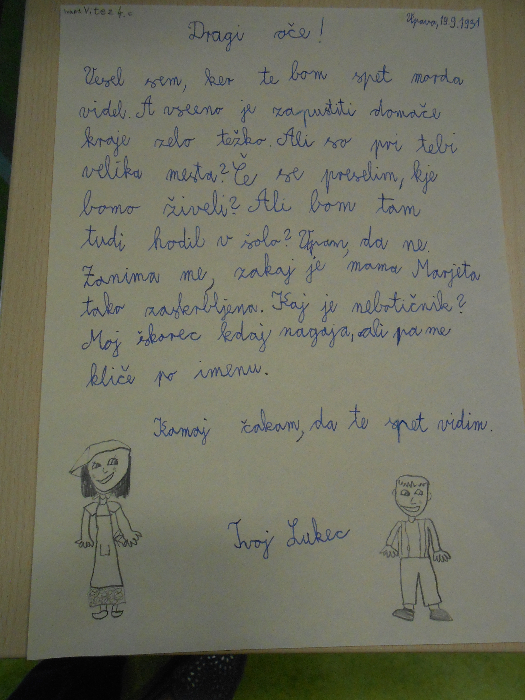 Vitez 4. c
Vipava, 19.9.1931
Dragi oče!
Vesel sem, ker te bom spet morda
videl. A vseeno je zapustiti domače
kraje zelo težko. Ali so pri tebi
velika mesta? Če se preselim, kje
bomo živeli? Ali bom tam
tudi hodil v šolo? Upam, da ne.
Zanima me, zakaj je mama Marjeta
tako zaskrbljena. Kaj je nebotičnik?
Moj škorec kdaj nagaja, ali pa me
kliče po imenu.
Komaj čakam, da te spet vidim.
Tvoj Lukec